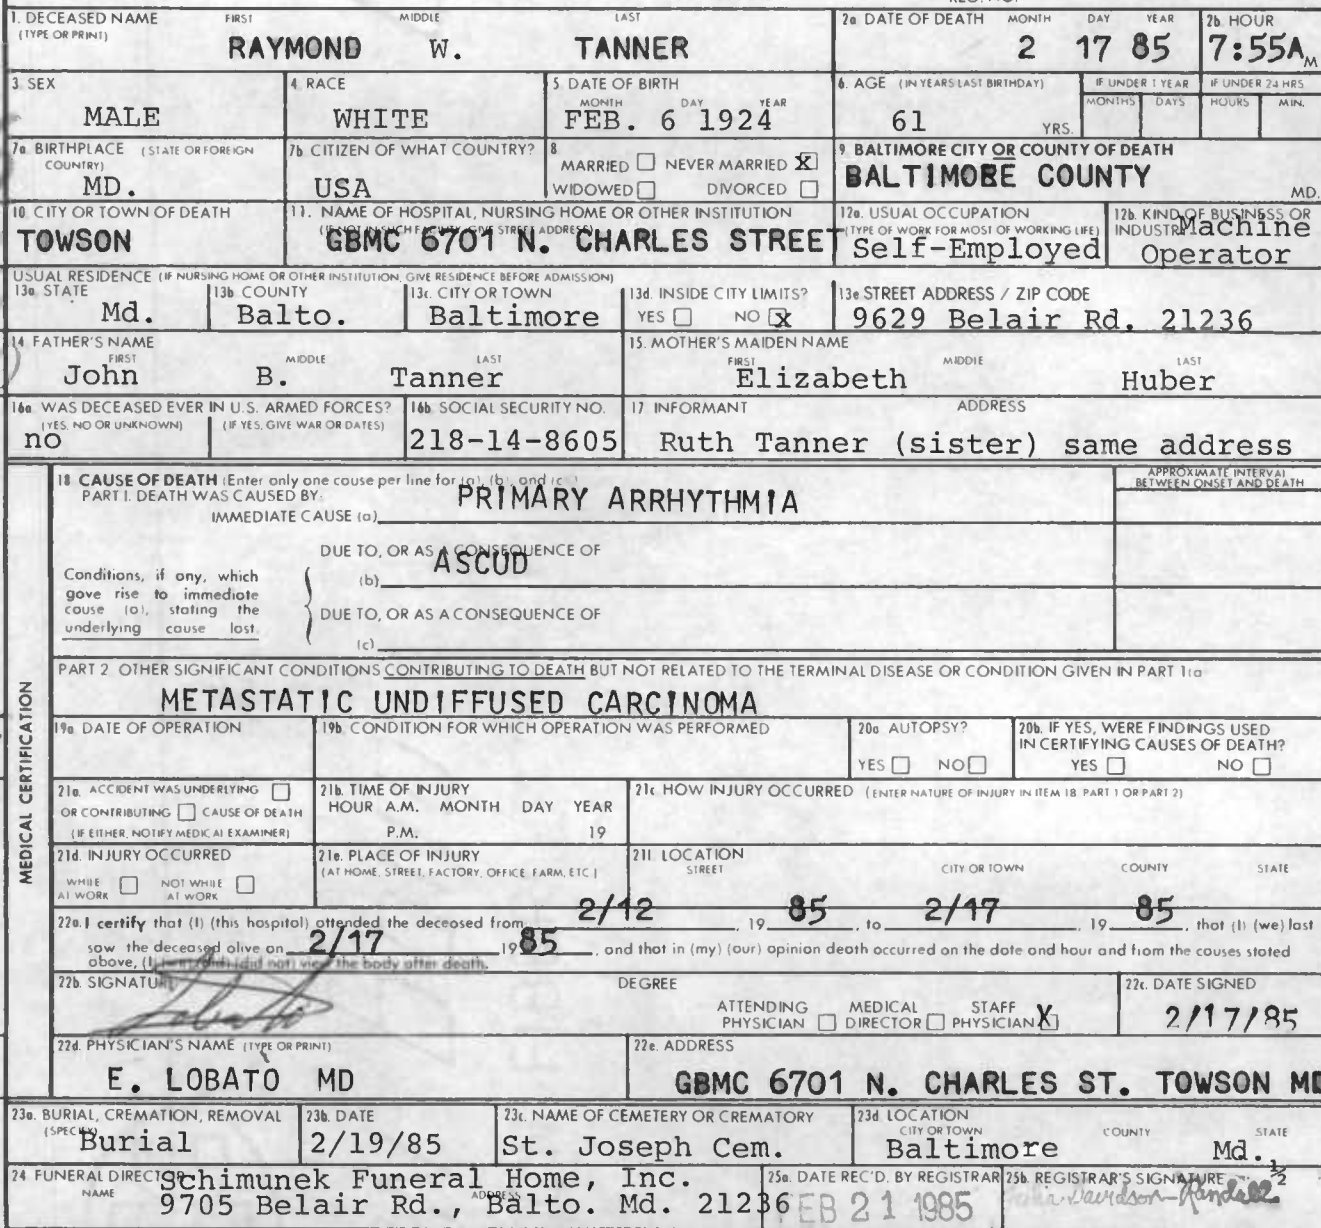 1. DECEASED NAME (TYPE OR PRINT) FIRST MIDDLE LAST
RAYMOND W. TANNER
2a DATE OF DEATH MONTH DAY YEAR
2 17 85
2b. HOUR
7:55A M
3. SEX
MALE
4. RACE
WHITE
5. DATE OF BIRTH MONTH DAY YEAR
FEB. 6 1924
6. AGE (IN YEARS LAST BIRTHDAY)
61 YRS.
IF UNDER 1 YEAR MONTHS DAYS
IF UNDER 24 HRS HOURS MIN.
7a. BIRTHPLACE (STATE OR FOREIGN COUNTRY)
MD.
7b CITIZEN OF WHAT COUNTRY?
USA
8
MARRIED NEVER MARRIED X
WIDOWED DIVORCED
9. BALTIMORE CITY OR COUNTY OF DEATH
BALTIMORE COUNTY MD.
10. CITY OR TOWN OF DEATH
TOWSON
11. NAME OF HOSPITAL, NURSING HOME OR OTHER INSTITUTION
(IF NOT IN SUCH FACILITY, GIVE STREET ADDRESS)
GBMC 6701 N. CHARLES STREET
12a. USUAL OCCUPATION
(TYPE OF WORK FOR MOST OF WORKING LIFE)
Self-Employed
12b. KIND OF BUSINESS OR INDUSTRY
Machine
Operator
USUAL RESIDENCE (IF NURSING HOME OR OTHER INSTITUTION, GIVE RESIDENCE BEFORE ADMISSION)
13a. STATE
Md.
13b COUNTY
Balto.
13c. CITY OR TOWN
Baltimore
13d. INSIDE CITY LIMITS?
YES NO X
13e STREET ADDRESS / ZIP CODE
9629 Belair Rd. 21236
14. FATHER'S NAME FIRST MIDDLE LAST
John B. Tanner
15. MOTHER'S MAIDEN NAME FIRST MIDDLE LAST
Elizabeth Huber
16a WAS DECEASED EVER IN U.S. ARMED FORCES?
(YES, NO OR UNKNOWN) (IF YES, GIVE WAR OR DATES)
no
16b. SOCIAL SECURITY NO.
218-14-8605
17 INFORMANT ADDRESS
Ruth Tanner (sister) same address
MEDICAL CERTIFICATION
18 CAUSE OF DEATH (Enter only one cause per line for (a), (b), and (c).)
PART I. DEATH WAS CAUSED BY:
IMMEDIATE CAUSE (a) PRIMARY ARRHYTHMIA
APPROXIMATE INTERVAL
BETWEEN ONSET AND DEATH
Conditions, if any, which
gave rise to immediate
cause (a), stating the
underlying cause last.
DUE TO, OR AS A CONSEQUENCE OF
(b) ASCUD
DUE TO, OR AS A CONSEQUENCE OF
(c)
PART 2 OTHER SIGNIFICANT CONDITIONS CONTRIBUTING TO DEATH BUT NOT RELATED TO THE TERMINAL DISEASE OR CONDITION GIVEN IN PART 1(a)
METASTATIC UNDIFFUSED CARCINOMA
19a DATE OF OPERATION
19b. CONDITION FOR WHICH OPERATION WAS PERFORMED
20a AUTOPSY?
YES NO
20b. IF YES, WERE FINDINGS USED
IN CERTIFYING CAUSES OF DEATH?
YES NO
21a. ACCIDENT WAS UNDERLYING
OR CONTRIBUTING CAUSE OF DEATH
(IF EITHER, NOTIFY MEDICAL EXAMINER)
21b. TIME OF INJURY
HOUR A.M. MONTH DAY YEAR
P.M. 19
21c HOW INJURY OCCURRED (ENTER NATURE OF INJURY IN ITEM 18 PART 1 OR PART 2)
21d. INJURY OCCURRED
WHILE AT WORK NOT WHILE AT WORK
21e. PLACE OF INJURY
(AT HOME, STREET, FACTORY, OFFICE, FARM, ETC.)
21f. LOCATION
STREET CITY OR TOWN COUNTY STATE
22a. I certify that (I) (this hospital) attended the deceased from 2/12 , 19 85 , to 2/17 , 19 85 , that (I) (we) last
saw the deceased alive on 2/17 1985 , and that in (my) (our) opinion death occurred on the date and hour and from the causes stated
above, (I) (we) (did) (did not) view the body after death.
22b. SIGNATURE
Lobato
DEGREE
ATTENDING PHYSICIAN MEDICAL DIRECTOR STAFF PHYSICIAN X
22c. DATE SIGNED
2/17/85
22d. PHYSICIAN'S NAME (TYPE OR PRINT)
E. LOBATO MD
22e. ADDRESS
GBMC 6701 N. CHARLES ST. TOWSON MD
23a. BURIAL, CREMATION, REMOVAL (SPECIFY)
Burial
23b. DATE
2/19/85
23c. NAME OF CEMETERY OR CREMATORY
St. Joseph Cem.
23d LOCATION
CITY OR TOWN COUNTY STATE
Baltimore Md.
24 FUNERAL DIRECTOR NAME ADDRESS
Schimunek Funeral Home, Inc.
9705 Belair Rd., Balto. Md. 21236
25a. DATE REC'D. BY REGISTRAR
FEB 21 1985
25b. REGISTRAR'S SIGNATURE
Davidson-Randall